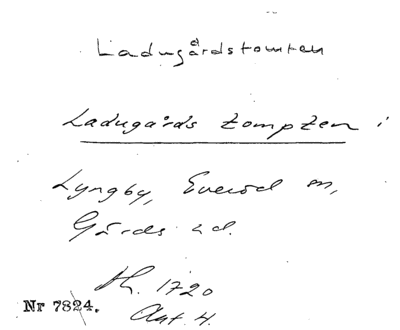 Ladugårdstomten
Ladugårds tompten i
Lyngby, Everöd sn,
Gärds hd.
Lh. 1720
Nr 7824.
Akt. 4.